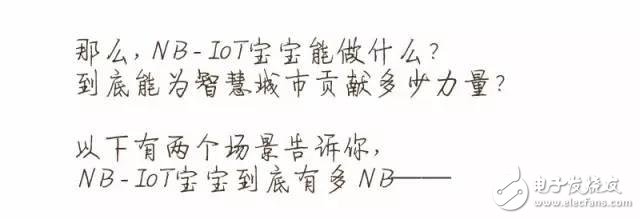 那么，NB-IoT宝宝能做什么？
到底能为智慧城市贡献多少力量？
以下有两个场景告诉你，
NB-IoT宝宝到底有多NB——
电子发烧友
www.elecfans.com